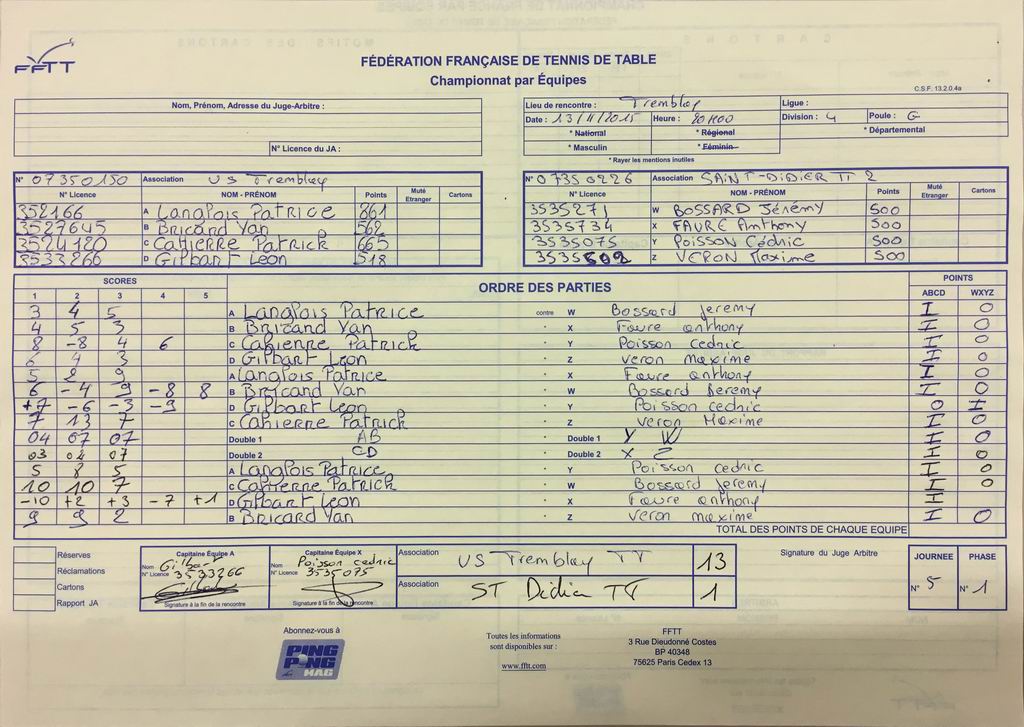 FFTT
FÉDÉRATION FRANÇAISE DE TENNIS DE TABLE
Championnat par Équipes
C.S.F. 13.2.0.4a
Nom, Prénom, Adresse du Juge-Arbitre :
N° Licence du JA :
Lieu de rencontre : Tremblay Ligue :
Date : 13/11/2015 Heure : 20H00 Division : 4 Poule : G
* National * Régional * Départemental
* Masculin * Féminin
* Rayer les mentions inutiles
N° 07350150 Association US Tremblay
N° Licence NOM - PRÉNOM Points Muté Etranger Cartons
352166 A Langlois Patrice 861
3527645 B Bricard Yan 562
3524120 C Cahierre Patrick 665
3533266 D Gilbart Léon 518
N° 07350226 Association SAINT-DIDIER TT 2
N° Licence NOM - PRÉNOM Points Muté Etranger Cartons
3535271 W BOSSARD Jérémy 500
3535734 X FAURE Anthony 500
3535075 Y POISSON Cédric 500
3535602 Z VERON Maxime 500
SCORES ORDRE DES PARTIES POINTS
1 2 3 4 5 ABCD WXYZ
3 4 5 A Langlois Patrice contre W Bossard Jeremy I 0
4 5 3 B Bricard Yan X Faure anthony I 0
8 -8 4 6 C Cahierre Patrick Y Poisson Cedric I 0
6 4 3 D Gilbart Léon Z Veron Maxime I 0
5 2 9 A Langlois Patrice X Faure anthony I 0
6 -4 9 -8 8 B Bricard Yan W Bossard Jeremy I 0
+7 -6 -3 -9 D Gilbart Léon Y Poisson cedric 0 I
7 13 7 C Cahierre Patrick Z Veron Maxime I 0
04 07 07 Double 1 AB Double 1 Y W I 0
03 02 07 Double 2 CD Double 2 X Z I 0
5 8 5 A Langlois Patrice Y Poisson cedric I 0
10 10 7 C Cahierre Patrick W Bossard Jeremy I 0
-10 +2 +3 -7 +1 D Gilbart Léon X Faure anthony I
9 9 2 B Bricard Yan Z Veron maxime I 0
TOTAL DES POINTS DE CHAQUE EQUIPE
Réserves
Réclamations
Cartons
Rapport JA
Capitaine Équipe A
Nom
N° Licence 3533266
Signature à la fin de la rencontre
Capitaine Équipe X
Nom Poisson cedric
N° Licence 3535075
Signature à la fin de la rencontre
Association US Tremblay TT 13
Association ST Didier TT 1
Signature du Juge Arbitre
JOURNEE PHASE
N° 5 N° 1
Abonnez-vous à
PING PONG MAG
Toutes les informations
sont disponibles sur :
www.fftt.com
FFTT
3 Rue Dieudonné Costes
BP 40348
75625 Paris Cedex 13